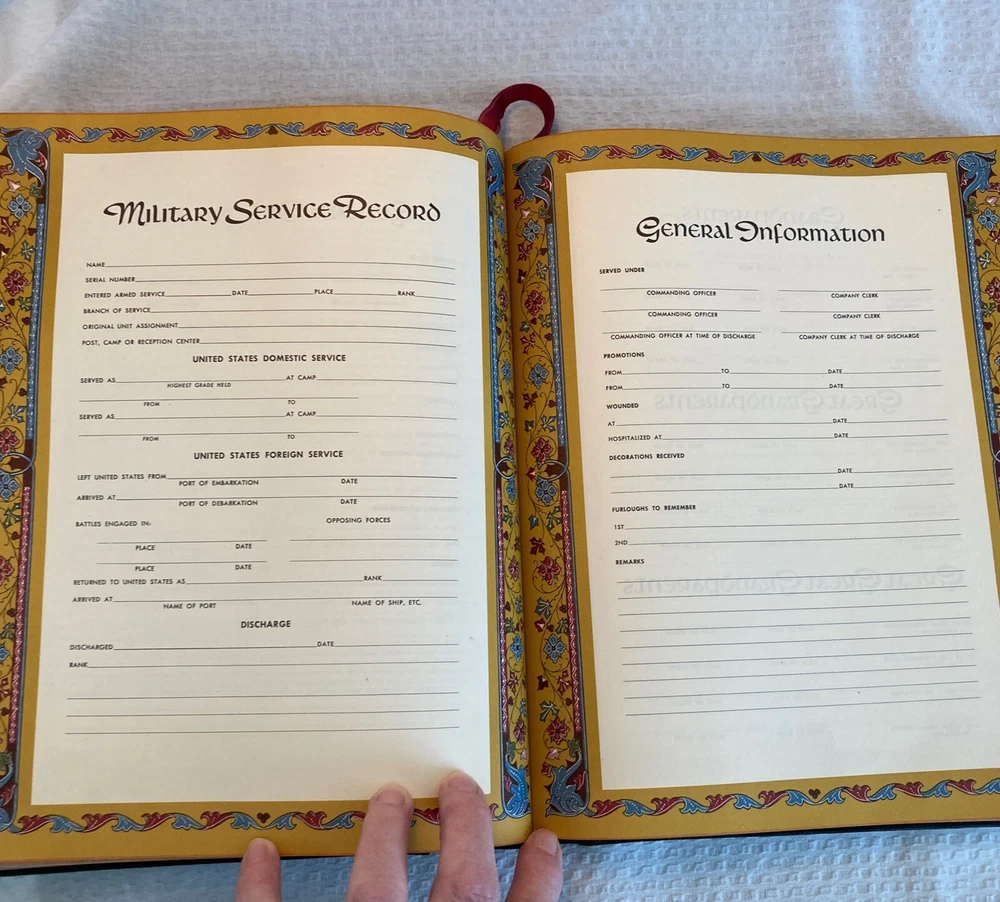 Military Service Record
NAME
SERIAL NUMBER
ENTERED ARMED SERVICE DATE PLACE RANK
BRANCH OF SERVICE
ORIGINAL UNIT ASSIGNMENT
POST, CAMP OR RECEPTION CENTER
UNITED STATES DOMESTIC SERVICE
SERVED AS AT CAMP
HIGHEST GRADE HELD
FROM TO
SERVED AS AT CAMP
FROM TO
UNITED STATES FOREIGN SERVICE
LEFT UNITED STATES FROM
PORT OF EMBARKATION DATE
ARRIVED AT
PORT OF DEBARKATION DATE
BATTLES ENGAGED IN: OPPOSING FORCES
PLACE DATE
PLACE DATE
RETURNED TO UNITED STATES AS RANK
ARRIVED AT
NAME OF PORT NAME OF SHIP, ETC.
DISCHARGE
DISCHARGED DATE
RANK
General Information
SERVED UNDER
COMMANDING OFFICER COMPANY CLERK
COMMANDING OFFICER COMPANY CLERK
COMMANDING OFFICER AT TIME OF DISCHARGE COMPANY CLERK AT TIME OF DISCHARGE
PROMOTIONS
FROM TO DATE
FROM TO DATE
WOUNDED
AT DATE
HOSPITALIZED AT DATE
DECORATIONS RECEIVED
DATE
DATE
FURLOUGHS TO REMEMBER
1ST
2ND
REMARKS
Grandparents
Great Grandparents
Great Great Grandparents